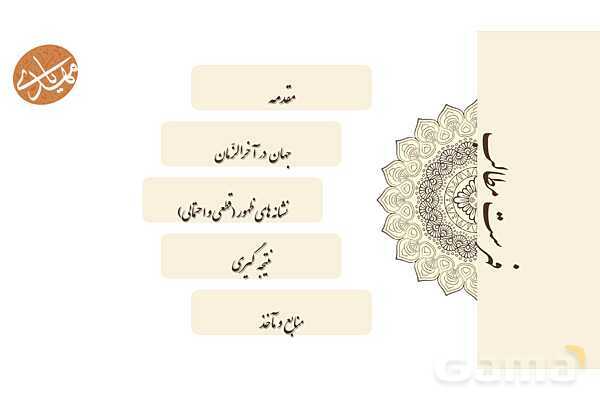 فهرست مطالب
مهدیاری
مقدمه
جهان در آخرالزّمان
نشانه های ظهور (قطعی و احتمالی)
نتیجه گیری
منابع و مآخذ
Gama